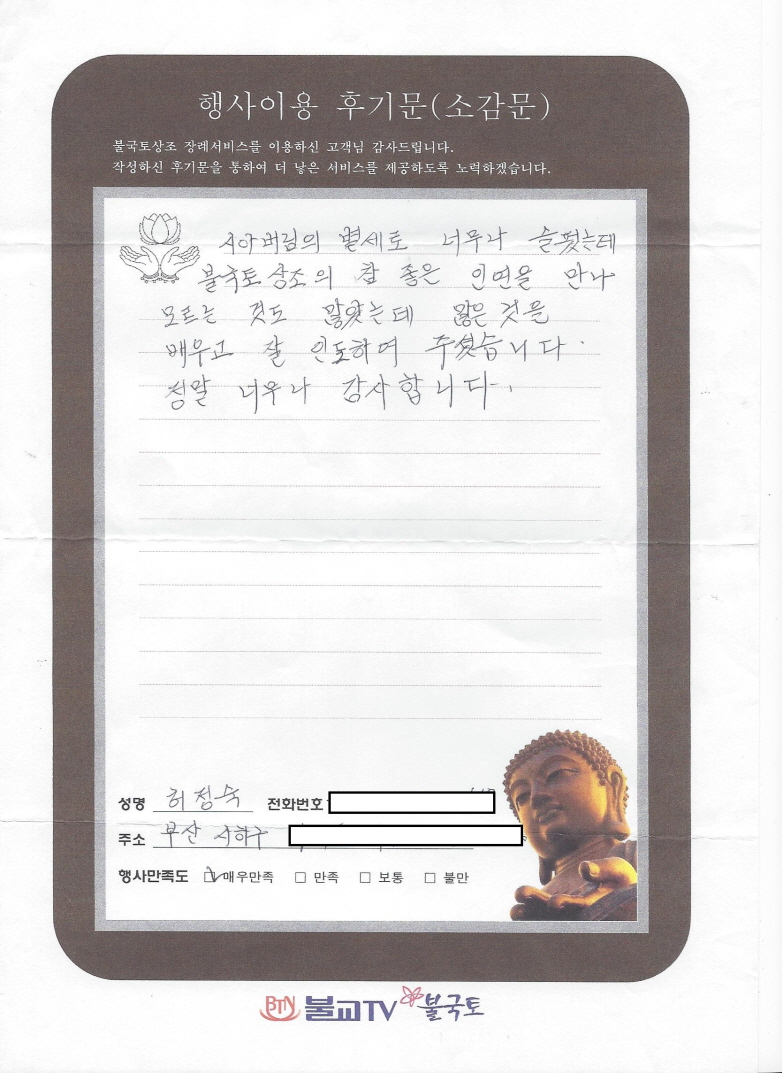 행사이용 후기문(소감문)
불국토상조 장례서비스를 이용하신 고객님 감사드립니다.
작성하신 후기문을 통하여 더 낳은 서비스를 제공하도록 노력하겠습니다.
시아버님의 별세로 너무나 슬펐는데
불국토상조의 참 좋은 인연을 만나
모르는 것도 많았는데 많은 것을
배우고 잘 인도하여 주셨습니다.
정말 너무나 감사합니다.
성명 허정숙 전화번호
주소 부산 사하구
행사만족도 매우만족 만족 보통 불만
BTN 불교TV 불국토